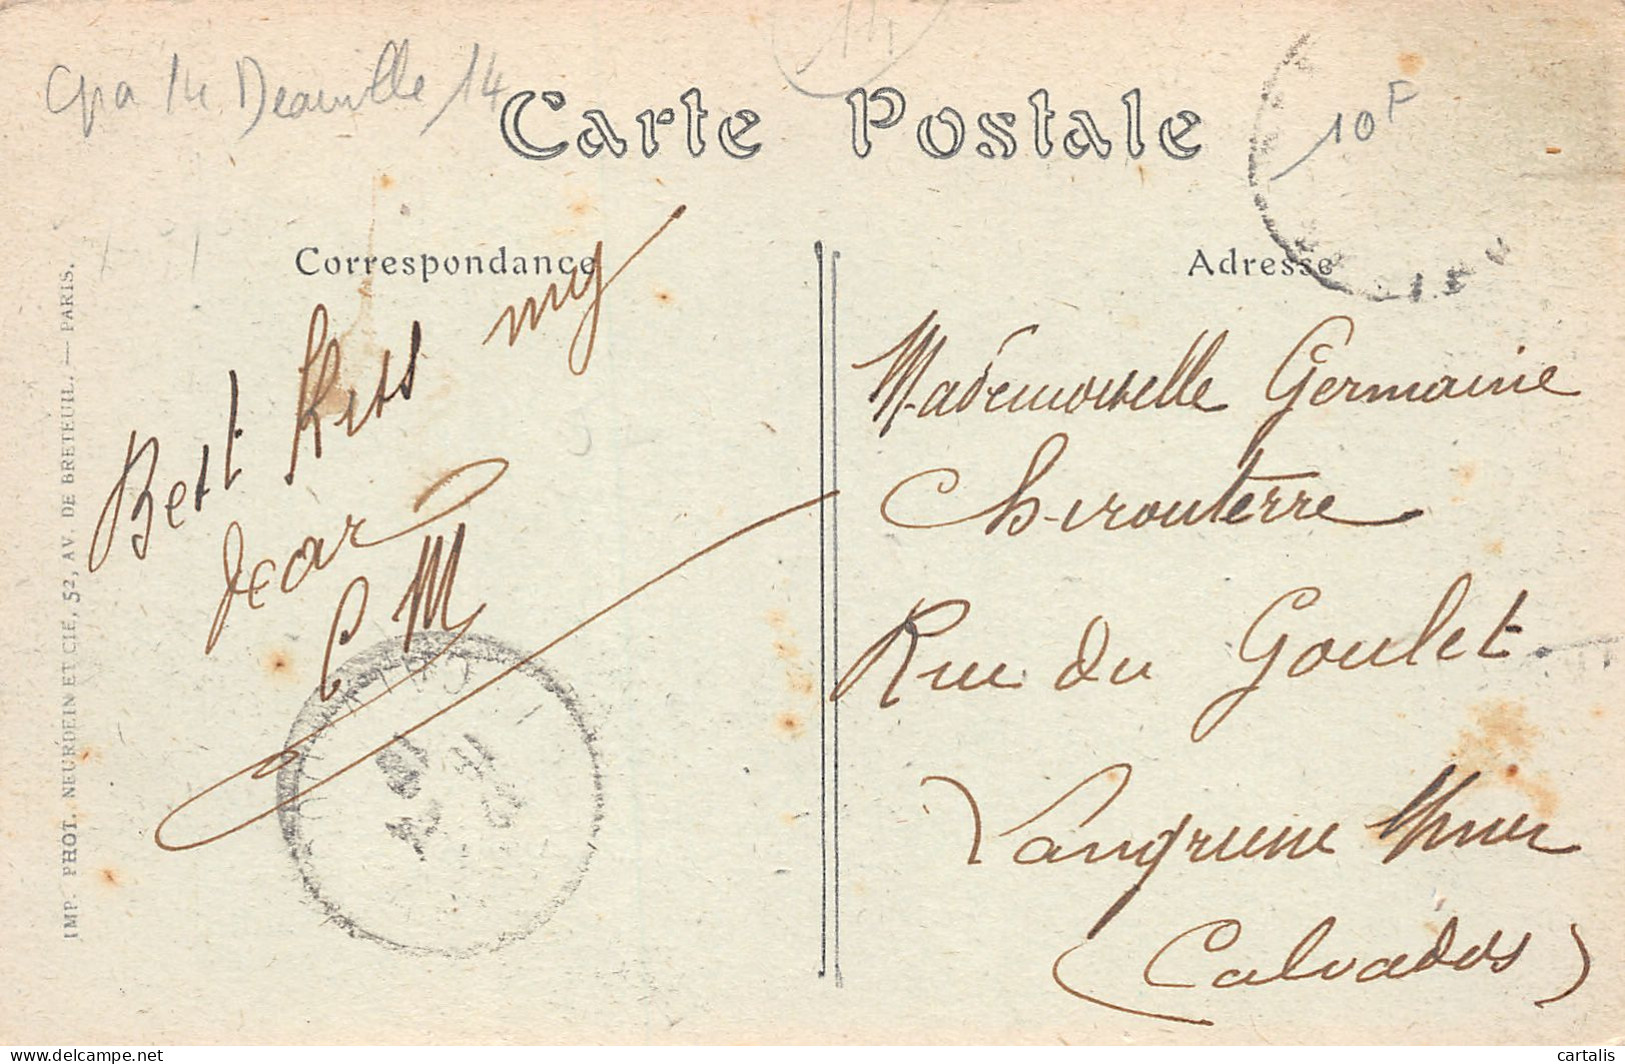 Cpa 14 Deauville 14
14
Carte Postale
10F
Correspondance
Adresse
Best Kiss my
dear
CM
Mademoiselle Germaine
Rue du Goulet
Langrune s/mer
(Calvados)
IMP. PHOT. NEURDEIN ET CIE, 52, AV. DE BRETEUIL. — PARIS.
delcampe.net
cartalis